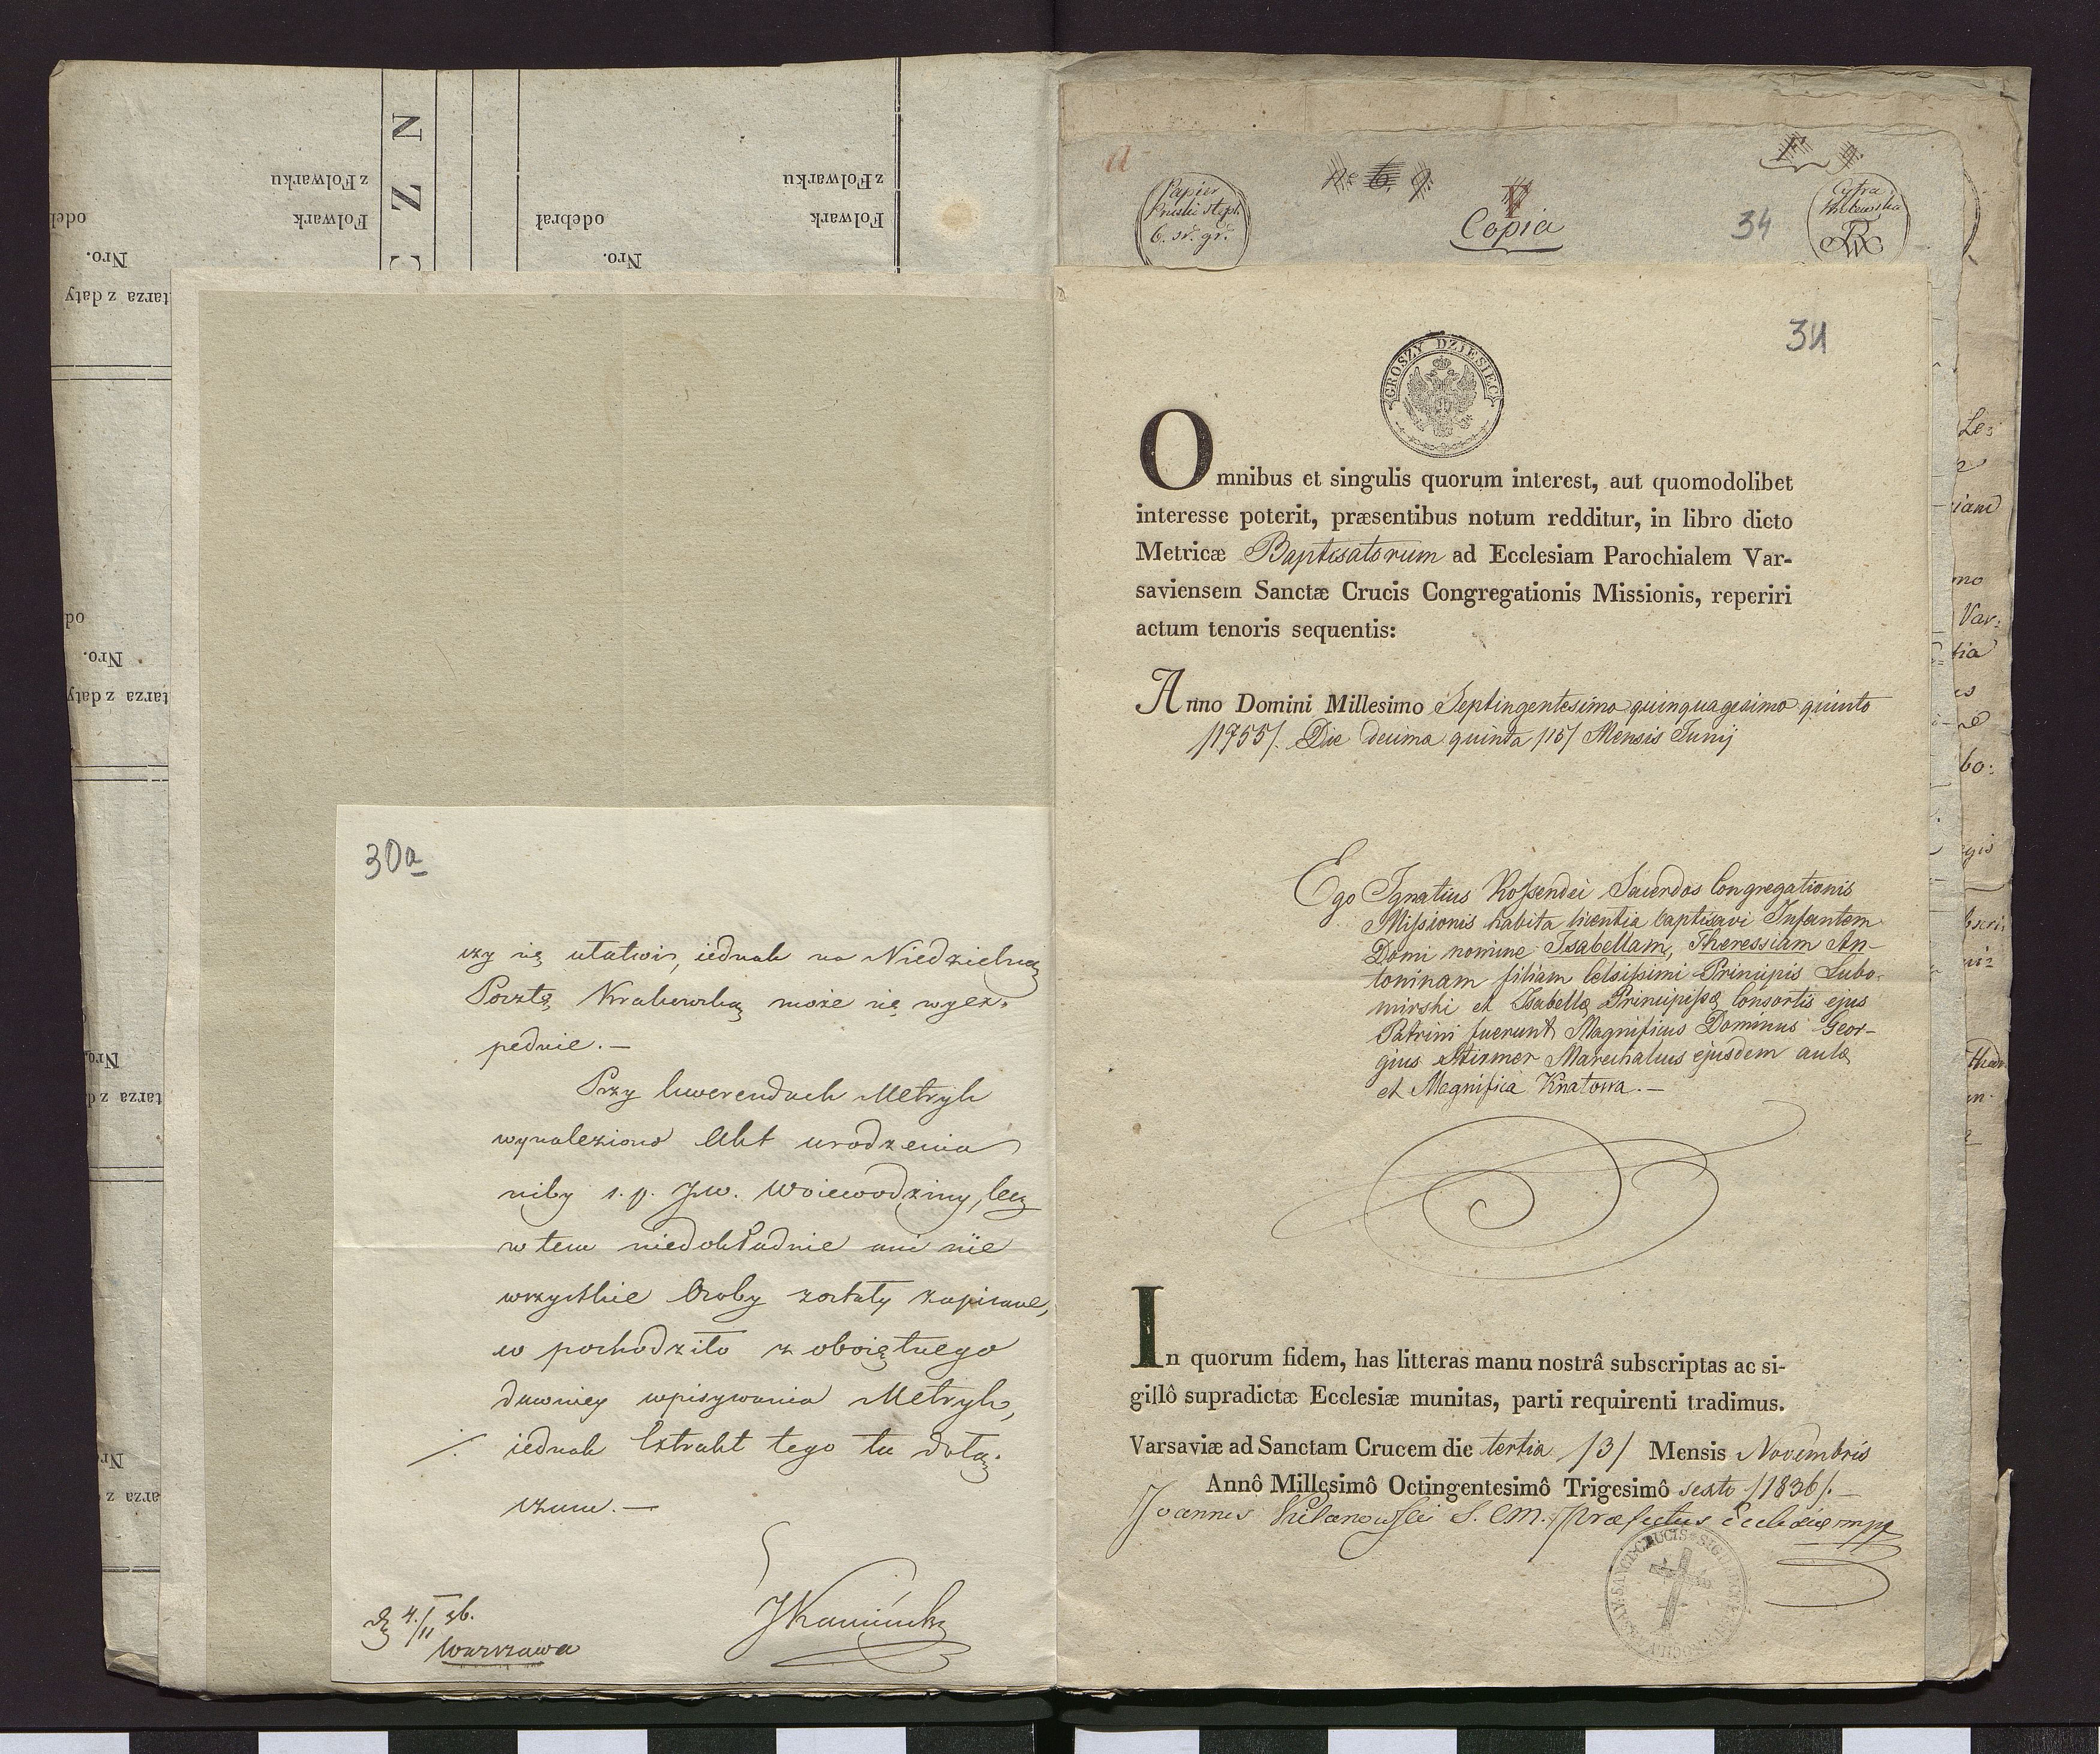 N Z
z Folwarku
Folwark
odebrał
Nro.
z Folwarku
Folwark
Nro.
tarza z daty
Nro.
tarza z daty
Nro.
30a
czy się ułatwi, iednak na Niedzielną
Pocztę Krakowską może się wyex-
pednie.—
Przy kwerendach Metryk
wynaleziono Akt urodzenia
niby s. p. JW. Woiewodziny, lecz
w tem niedokładnie ani nie
wszystkie Osoby zostały zapisane,
co pochodziło z oboiętnego
dawniey wpisywania Metryk,
iednak Extrakt tego tu dołą-
czam.—
JKamiński
4/11 36.
Warszawa
a
Papier
Pruski stępl.
6. sr. gr.
No 6. 9.
V
Copia
34
F 9.
Cyfra
31
GROSZY DZIESIĘC
Omnibus et singulis quorum interest, aut quomodolibet
interesse poterit, præsentibus notum redditur, in libro dicto
Metricæ Baptisatorum ad Ecclesiam Parochialem Var-
saviensem Sanctæ Crucis Congregationis Missionis, reperiri
actum tenoris sequentis:
Anno Domini Millesimo Septingentesimo quinquagesimo quinto
/1755/. Die decima quinta /15/ Mensis Junij
Ego Ignatius Kossendei Sacerdos Congregationis
Missionis habita licentia baptisavi Infantem
Domi nomine Isabellam, Theressiam An-
toninam filiam Celsissimi Principis Lubo-
mirski et Isabellæ Principissæ Consortis ejus
Patrini fuerunt Magnificus Dominus Geor-
gius Marechalcus ejusdem aulæ
et Magnifica Knatowa.—
In quorum fidem, has litteras manu nostrâ subscriptas ac si-
gillô supradictæ Ecclesiæ munitas, parti requirenti tradimus.
Varsaviæ ad Sanctam Crucem die tertia /3/ Mensis Novembris
Annô Millesimô Octingentesimô Trigesimô sexto /1836/.—
Joannes S. C. M. Præfectus Ecclesiæ mpp